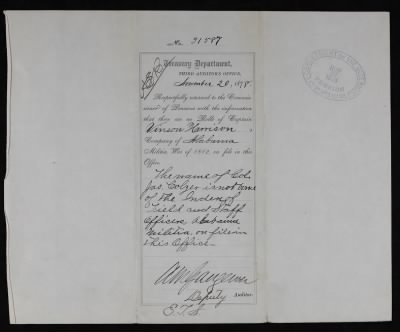 No. 31587
Treasury Department,
THIRD AUDITOR'S OFFICE,
November 20, 1878.
Respectfully returned to the Commis-
sioner of Pensions with the information
that they are no Rolls of Captain
Vinson Harrison
Company of Alabama
Militia, War of 1812, on file in this
Office.
The name of Col.
Jas. Colzer is not one
of the Index of
Field and Staff
Officers, Alabama
Militia, on file in
this Office.
Deputy Auditor.